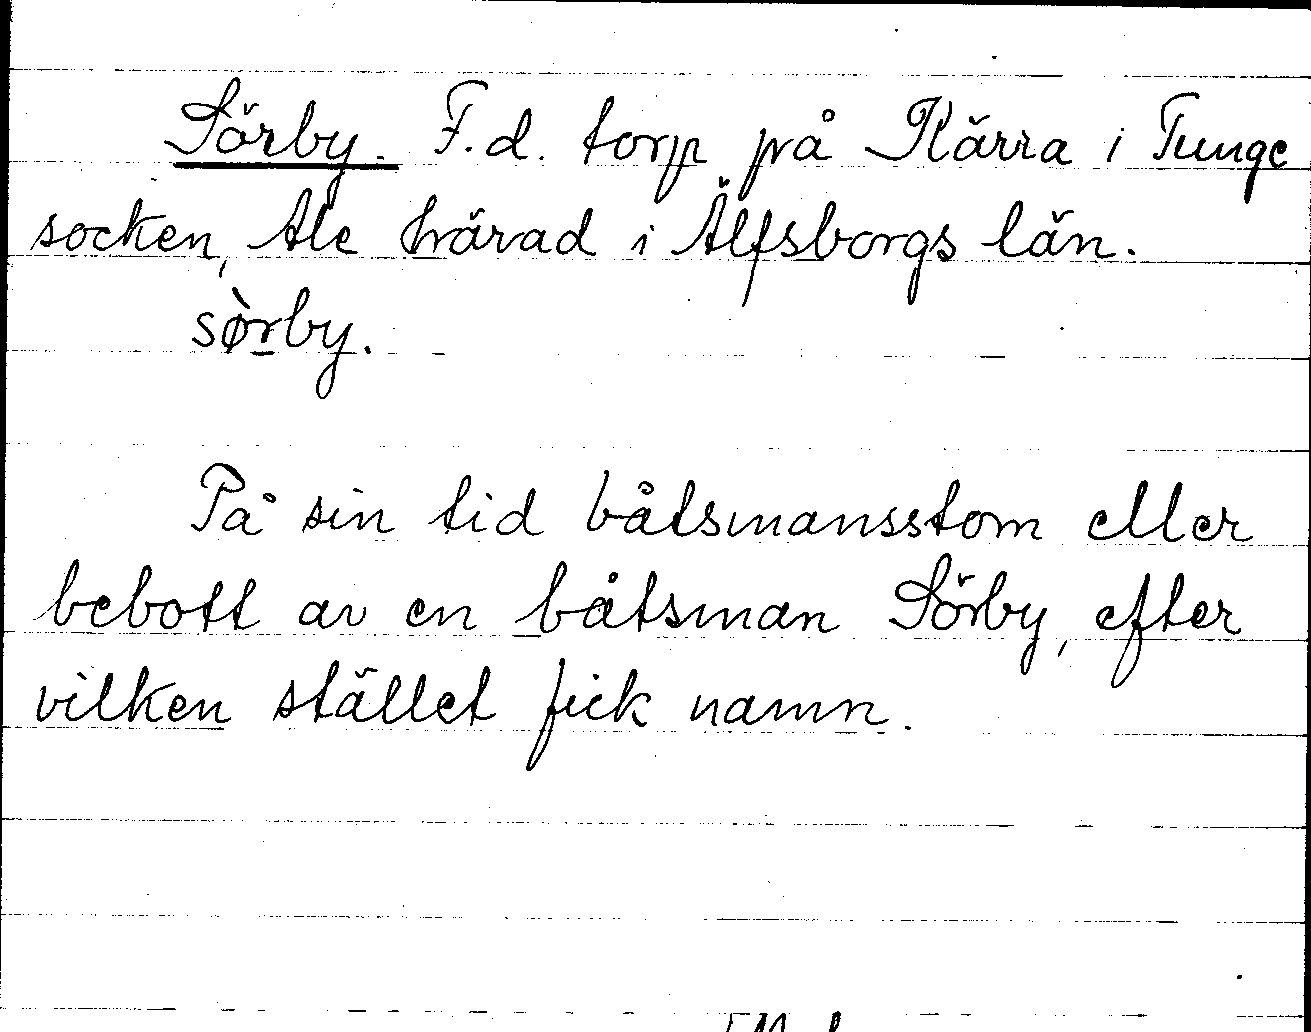 Sörby. F.d. torp på Kärra i Tunge
socken, Ale härad i Älfsborgs län.
sø̀rby.
På sin tid båtsmansstom eller
bebott av en båtsman Sörby, efter
vilken stället fick namn.